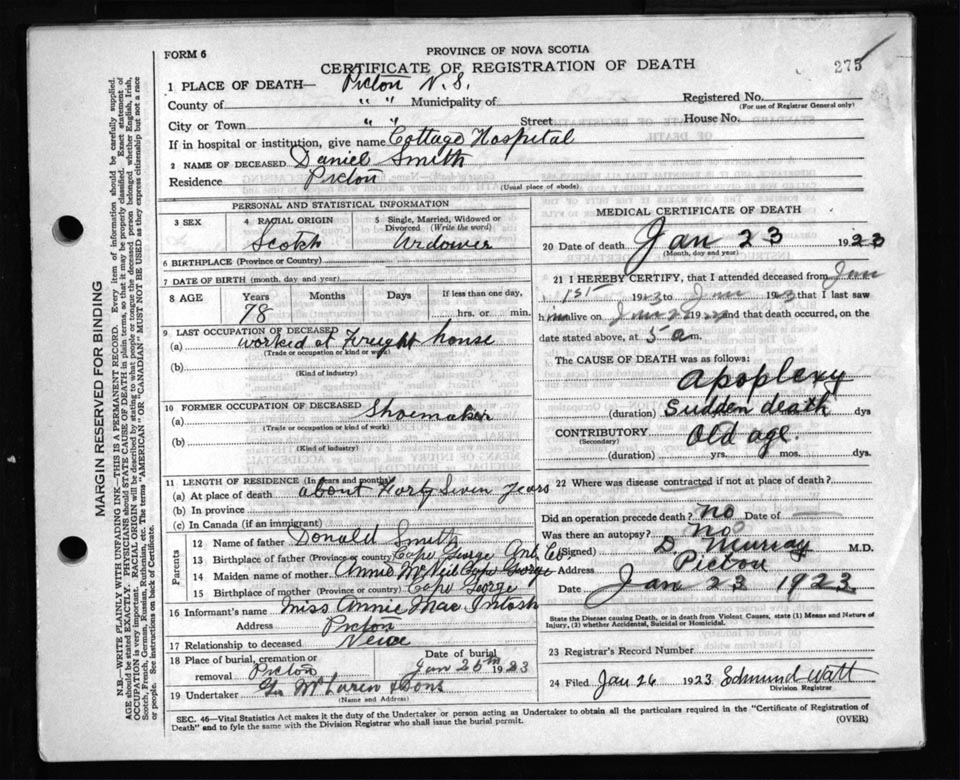 FORM 6
PROVINCE OF NOVA SCOTIA
CERTIFICATE OF REGISTRATION OF DEATH
275
1 PLACE OF DEATH— Pictou N.S.
County of " " Municipality of
Registered No.
(For use of Registrar General only)
City or Town " " Street House No.
If in hospital or institution, give name Cottage Hospital
2 NAME OF DECEASED Daniel Smith
Residence Pictou
(Usual place of abode)
PERSONAL AND STATISTICAL INFORMATION
3 SEX
4 RACIAL ORIGIN
Scotch
5 Single, Married, Widowed or Divorced (Write the word)
Widower
6 BIRTHPLACE (Province or Country)
7 DATE OF BIRTH (month, day, and year)
8 AGE Years Months Days If less than one day,
78 hrs. or min.
9 LAST OCCUPATION OF DECEASED
(a) worked at Freight house
(Trade or occupation or kind of work)
(b)
(Kind of industry)
10 FORMER OCCUPATION OF DECEASED
(a) Shoemaker
(Trade or occupation or kind of work)
(b)
(Kind of industry)
11 LENGTH OF RESIDENCE (In years and months)
(a) At place of death about Forty Seven Years
(b) In province
(c) In Canada (if an immigrant)
Parents
12 Name of father Donald Smith
13 Birthplace of father (Province or country) Cape George Ant. Co
14 Maiden name of mother Annie McNeil Cape George
15 Birthplace of mother (Province or country) Cape George
16 Informant's name Miss Annie MacIntosh
Address Pictou
17 Relationship to deceased Neice
18 Place of burial, cremation or removal Pictou
Date of burial
Jan 25th 1923
19 Undertaker Geo McLaren & Sons
(Name and Address)
MEDICAL CERTIFICATE OF DEATH
20 Date of death Jan 23 1923
(Month, day and year)
21 I HEREBY CERTIFY, that I attended deceased from Jan
1st 1923 to Jan 1923 that I last saw
him alive on and that death occurred, on the
date stated above, at 5 a m.
The CAUSE OF DEATH was as follows:
apoplexy
(duration) Sudden death dys
CONTRIBUTORY Old age.
(Secondary)
(duration) yrs. mos. dys.
22 Where was disease contracted if not at place of death?
Did an operation precede death? no Date of
Was there an autopsy? No
(Signed) D. Murray M.D.
Address Pictou
Date Jan 23 1923
State the Disease causing Death, or in death from Violent Causes, state (1) Means and Nature of Injury, (2) whether Accidental, Suicidal or Homicidal.
23 Registrar's Record Number
24 Filed Jan 26 1923 Edmund Watt
Division Registrar
SEC. 46—Vital Statistics Act makes it the duty of the Undertaker or person acting as Undertaker to obtain all the particulars required in the "Certificate of Registration of
Death" and to fyle the same with the Division Registrar who shall issue the burial permit.
(OVER)
MARGIN RESERVED FOR BINDING
N.B.—WRITE PLAINLY WITH UNFADING INK—THIS IS A PERMANENT RECORD. Every item of information should be carefully supplied.
AGE should be stated EXACTLY. PHYSICIANS should STATE CAUSE OF DEATH in plain terms, so that it may be properly classified. Exact statement of
OCCUPATION is very important. RACIAL ORIGIN will be described by stating to what people or tongue the deceased person belonged whether English, Irish,
Scotch, French, German, Russian, Ruthenian, etc. The terms "AMERICAN" OR "CANADIAN" MUST NOT BE USED as they express citizenship but not a race
or people. See instructions on back of Certificate.